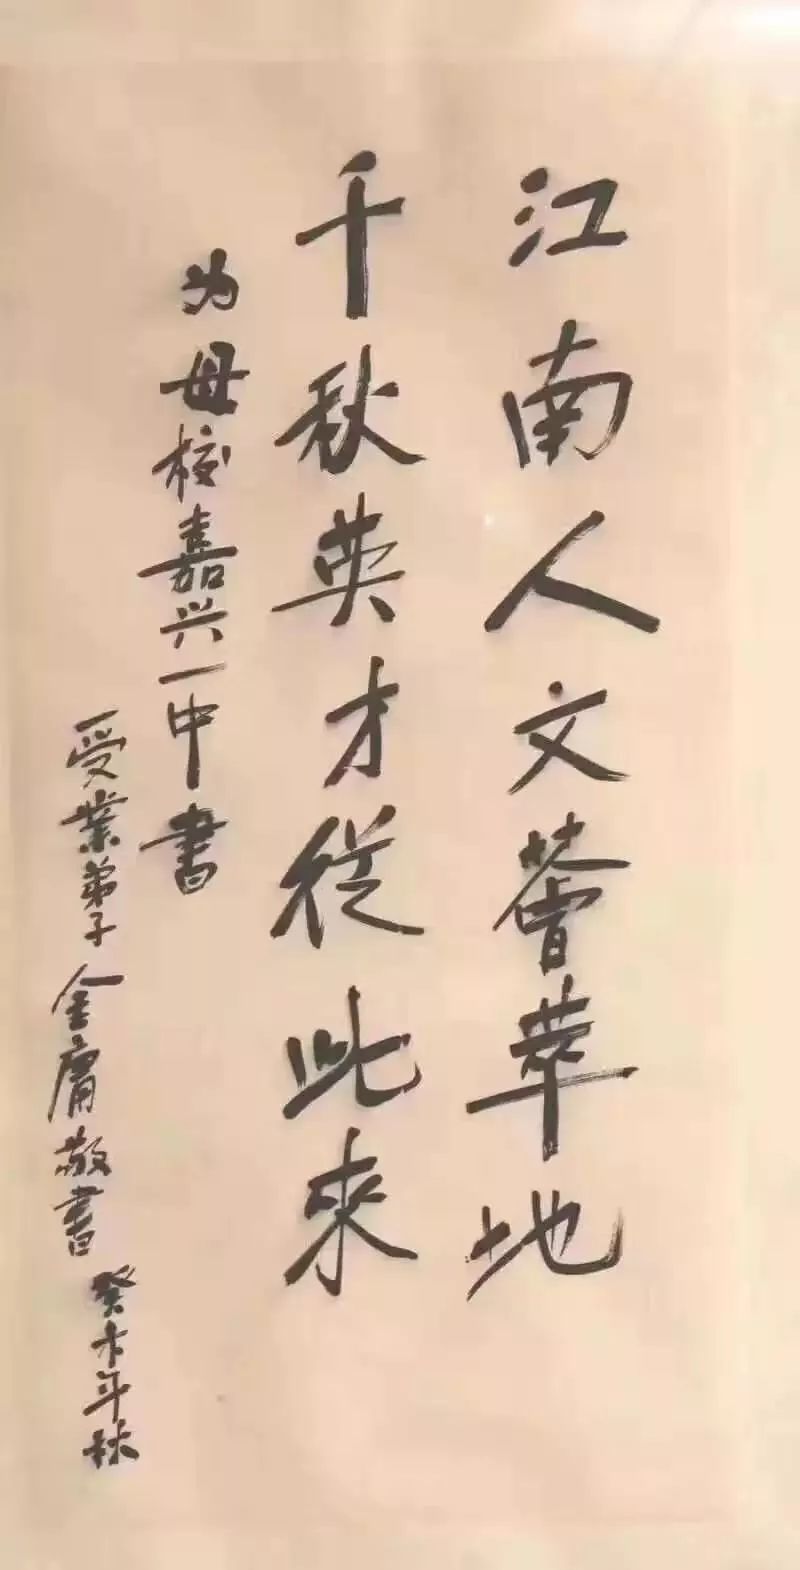 江南人文薈萃地
千秋英才從此來
为母校嘉兴一中書
受業弟子金庸敬書 癸未年秋